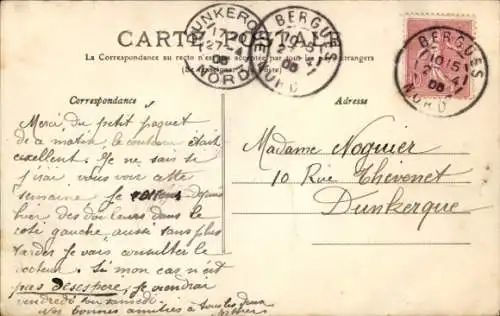 CARTE POSTALE
La Correspondance au recto n'est pas acceptée par tous les pays étrangers
(Se renseigner à la Poste)
DUNKERQUE
17-
27-4
08
NORD
BERGUES
1015
2 -4
08
NORD
BERGUES
1015
2 -4
08
NORD
Correspondance
Adresse
Merci du petit paquet
de a matin, le couteau était
excellent. Je ne sais se
j'irai vous voir cette
semaine. Je depuis
hier des douleurs dans le
coté gauche, aussi sans plus
tarder je vais consulter le
docteur. Si mon cas n'est
pas desespéré, je viendrai
vendredi ou samedi
nos bonnes amitiés à tous les deux
Madame Noguier
10 Rue Thévenet
Dunkerque